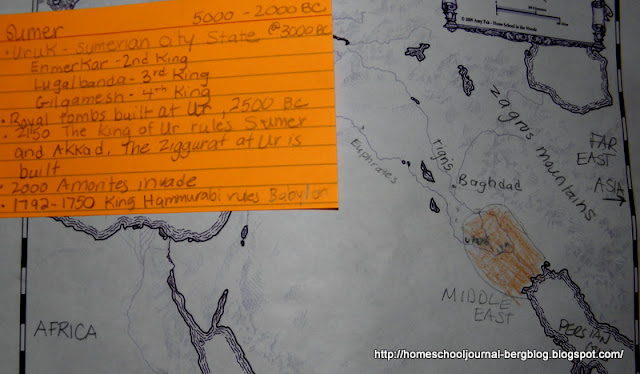 Sumer 5000 - 2000 BC
• Uruk - Sumerian City State @3000BC
Enmerkar - 2nd King
Lugalbanda - 3rd King
Gilgamesh - 4th King
• Royal tombs built at Ur, 2500 BC
• 2150 The King of Ur rules Sumer
and Akkad. The Ziggurat at Ur is
built
• 2000 Amorites invade
• 1792-1750 King Hammurabi rules Babylon
Zagros Mountains
FAR
EAST
ASIA
Euphrates
Tigris
Baghdad
Uruk
Ur
MIDDLE
EAST
PERSIAN
AFRICA
http://homeschooljournal-bergblog.blogspot.com/